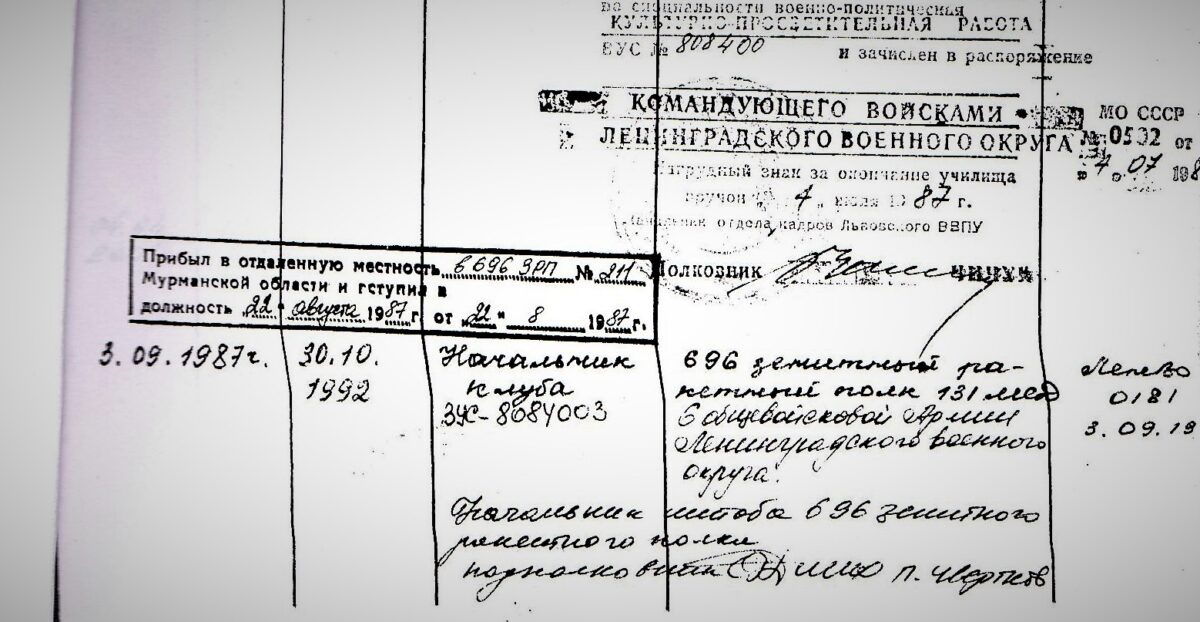 по специальности военно-политическая
КУЛЬТУРНО-ПРОСВЕТИТЕЛЬНАЯ РАБОТА
ВУС № 808400 и зачислен в распоряжение
КОМАНДУЮЩЕГО ВОЙСКАМИ
МО СССР
ЛЕНИНГРАДСКОГО ВОЕННОГО ОКРУГА
№ 0502 от
07 198
Нагрудный знак за окончание училища
вручен „4„ июля 1987 г.
Начальник отдела кадров Львовского ВВПУ
Полковник
Прибыл в отдаленную местность в 696 ЗРП № 211
Мурманской области и вступил в
должность „22" августа 1987 г. от „22" 8 1987 г.
3.09.1987г.
30.10.
1992
Начальник
клуба
ЗУС-8084003
696 зенитный ра-
кетный полк 131 мсд
6 общевойсковой Армии
Ленинградского военного
округа.
0181
3.09.19
Начальник штаба 696 зенитного
ракетного полка
подполковник п. Чертков